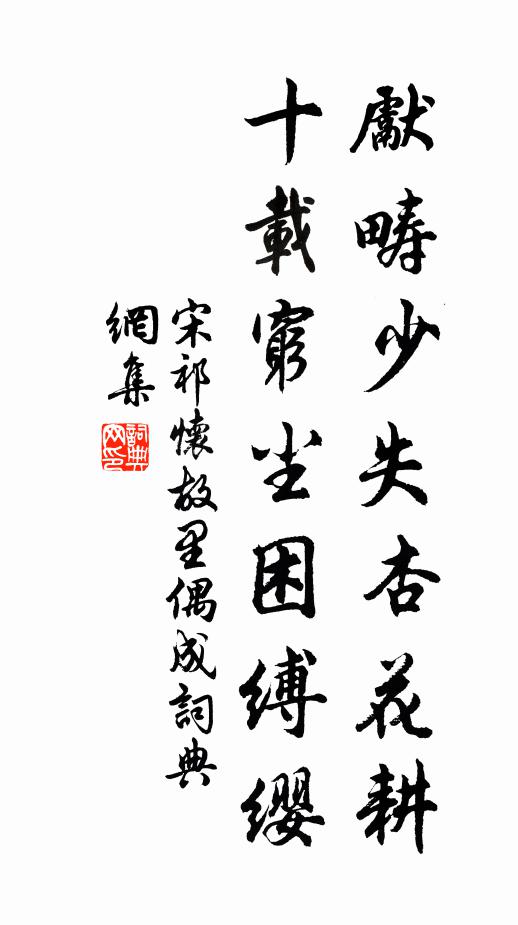 獻畴少失杏花耕
十載窮尘困縛纓
宋祁懷故里偶成詞典
網集
詞典
网印